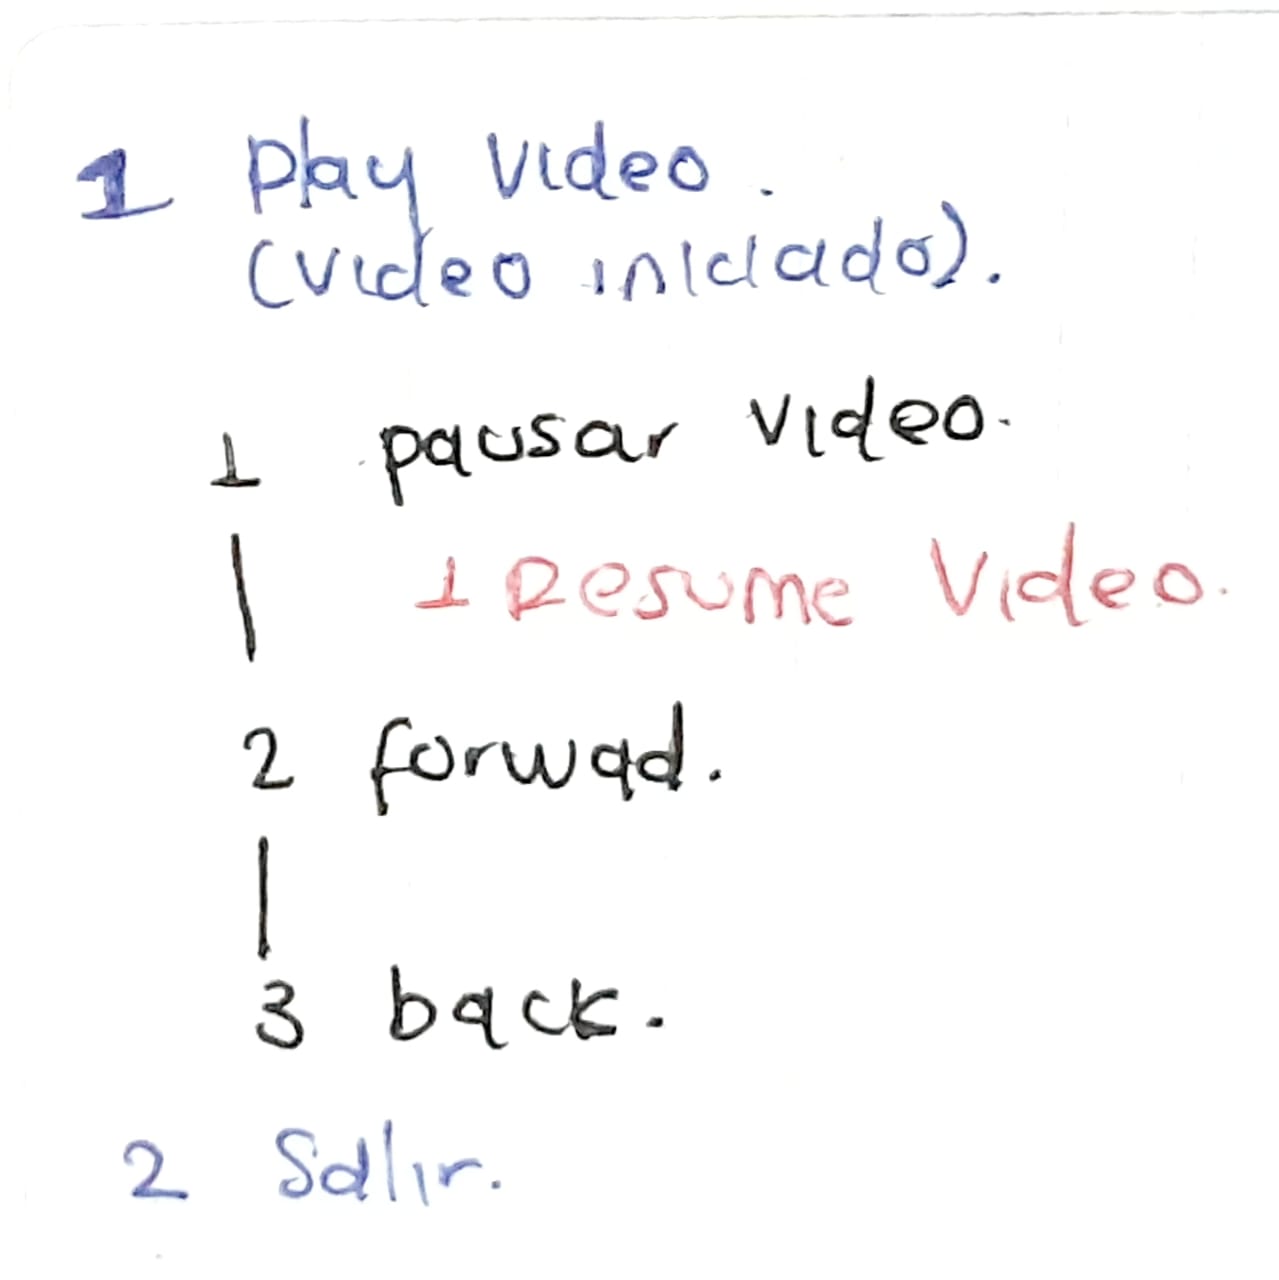 1 Play Video.
(Video iniciado).
1 pausar video.
1 Resume Video.
2 forwad.
3 back.
2 Salir.